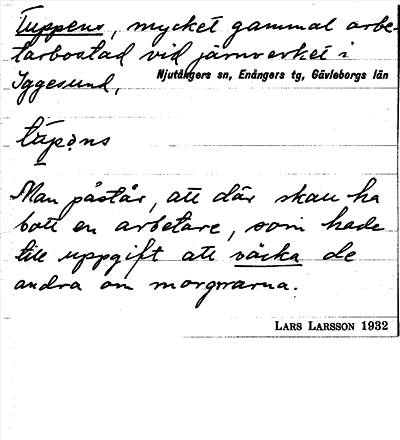 Tuppens, mycket gammal arbe-
tarbostad vid järnverket i
Iggesund,
Njutångers sn, Enångers tg, Gävleborgs län
Man påstår, att där skall ha
bott en arbetare, som hade
till uppgift att väcka de
andra om morgnarna.
LARS LARSSON 1932